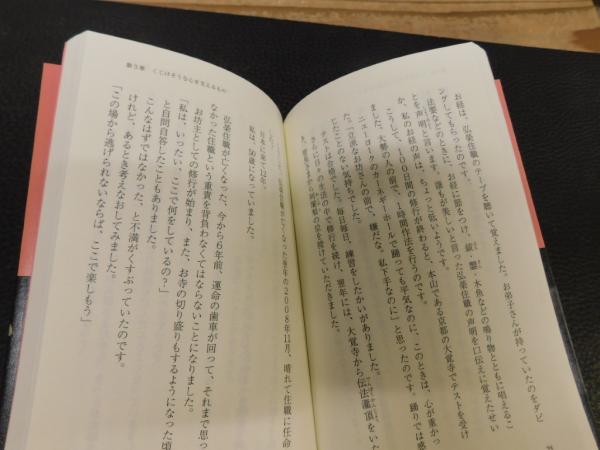 お経は、弘栄住職のテープを聴いて覚えました。お弟子さんが持っていたのをダビ
ングしてもらったのです。
法要などのときに、お経に節をつけ、鈸・鏧・木魚などの鳴り物とともに唱えるこ
とを声明と言います。誰もが美しいと言った弘栄住職の声明を口伝えに覚えたせい
か、私のお経の声は、ちょっと低いようです。
こうして、100日間の修行が終わると、本山である京都の大覚寺でテストを受け
ました。大勢の人の前で、1時間作法を行うのです。
ニューヨークのカーネギーホールで踊っても平気なのに、このときは、心が重かっ
たです。「立派なお坊さんの前で、嫌だな。私下手なのに」と思ったのです。踊りでは感
じたことのない気持ちでした。毎日毎日、練習をしたかいがありました。
テストは合格でした。
さらに日々の生活の中で修行を続け、翌年には、大覚寺から伝法灌頂をいた
第3章 くじけそうな心を支えるもの
翌年の2008年11月、晴れて住職に任命
日本に来て12年。
私は、50歳になっていました。
弘栄住職が亡くなった、今から6年前、運命の歯車が回って、それまで思っ
なかった住職という重責を背負わなくてはならないことになりました。
お坊主としての修行が始まり、また、お寺の切り盛りもするようになった頃
「私は、いったい、ここで何をしているの?」
と自問自答したこともありました。
こんなはずではなかった、と不満がくすぶっていたのです。
けれど、あるとき考えなおしてみました。
「この場から逃げられないならば、ここで楽しもう」